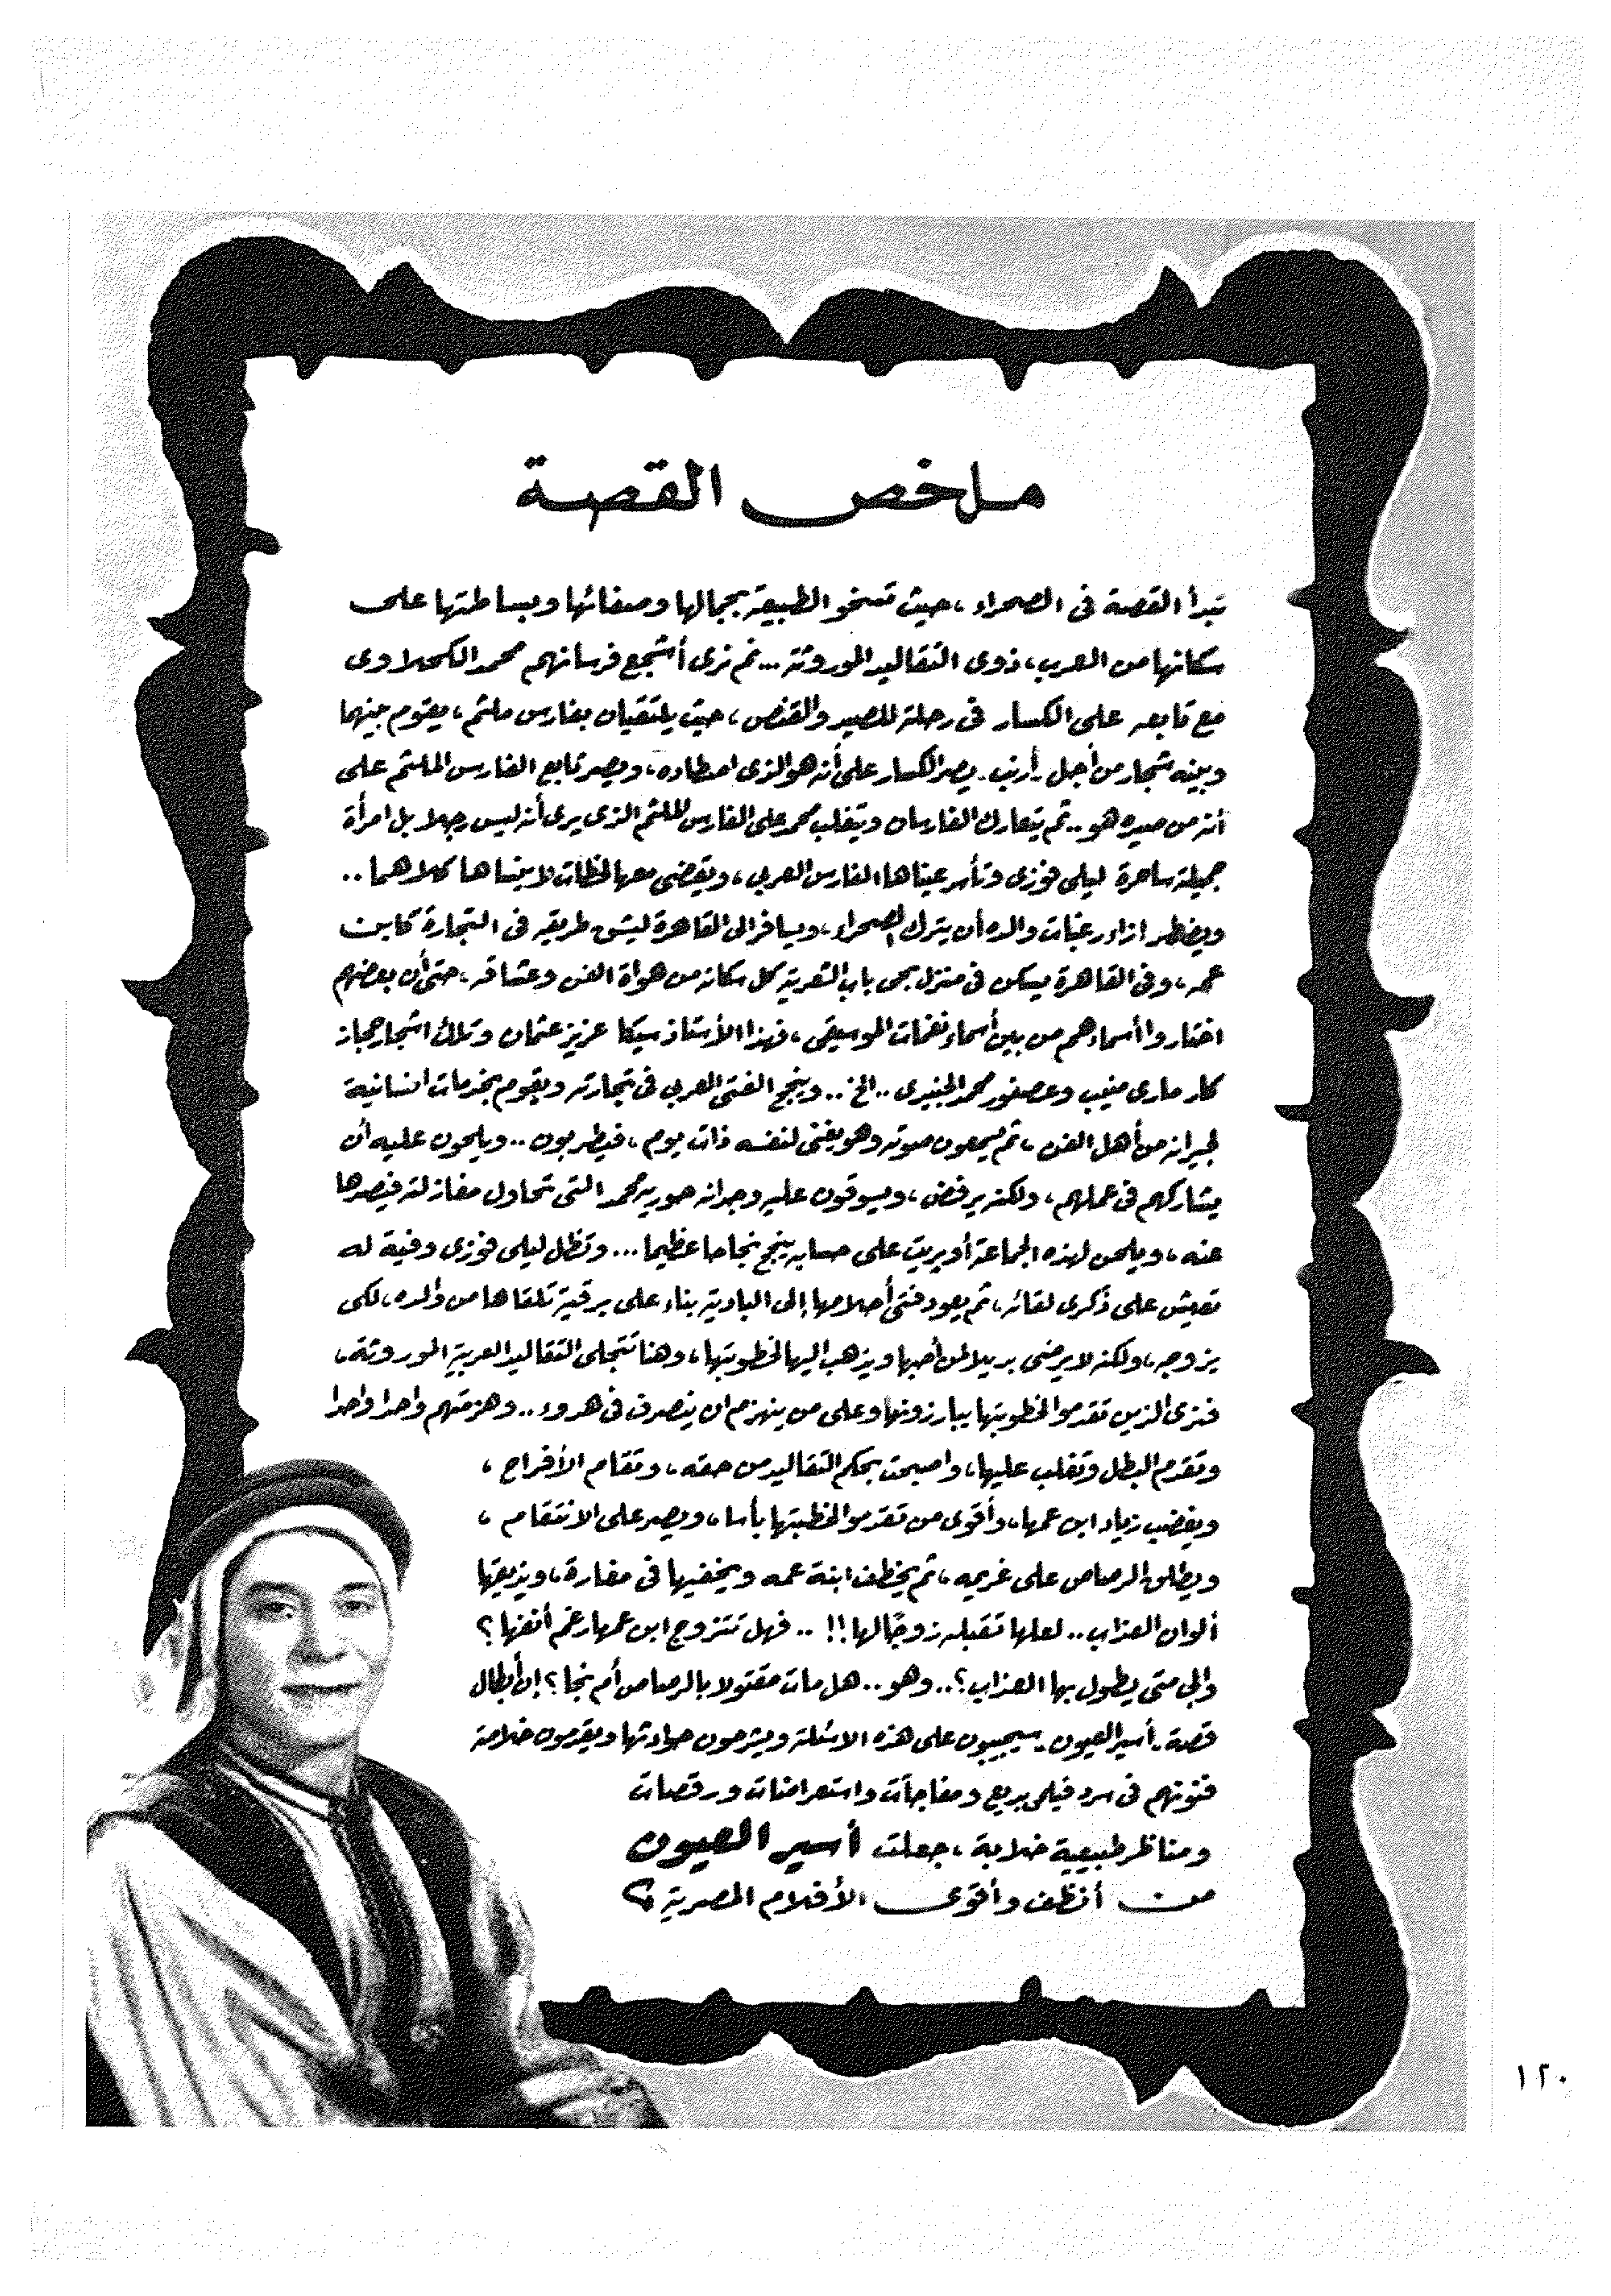 ملخص القصة
تبدأ القصة فى الصحراء ، حيث تسخو الطبيعة بجمالها وصفائها وبساطتها على
سكانها من العرب ، ذوى التقاليد الموروثة ... ثم نرى أشجع فرسانهم محمد الكحلاوى
مع تابعه على الكسار فى رحلة للصيد والقنص ، حيث يلتقيان بفارس ملثم ، يقوم بينهما
وبينه شجار من أجل أرنب . يصر الكسار على أنه هو الذى اصطاده ، ويصر تابع الفارس الملثم على
أنه من صيده هو .. ثم يتعارك الفارسان ويتغلب محمد على الفارس الملثم الذى يرى أنه ليس رجلا بل امرأة
جميلة ساحرة ليلى فوزى وتأسر عيناها الفارس العربى ، ويقضى معها لحظات لا ينساها كلاهما ..
ويضطر ازاء رغبات والده أن يترك الصحراء ، ويسافر الى القاهرة ليشق طريقه فى التجارة كابن
عمه ، وفى القاهرة يسكن فى منزل بحى باب الشعرية كل سكانه من هواة الفن وعشاقه . حتى أن بعضهم
اختاروا أسماءهم من بين أسماء نغمات الموسيقى ، فهذا الأستاذ سيكا عزيز عثمان وتلك اشجار حجاز
كار مارى منيب وعصفور محمد الجنيدى .. الخ .. وينجح الفتى العربى فى تجارته ويقوم بخدمات انسانية
لجيرانه من أهل الفن ، ثم يسمعون صوته وهو يغنى لنفسه ذات يوم ، فيطربون .. ويلحون عليه أن
يشاركهم فى عملهم ، ولكنه يرفض ، ويسوقون عليه وجدانه حورية محمد التى تحاول مغازلته فيصدها
عنه ، ويلحن لهذه الجماعة أوبريت على حسابه ينجح نجاحا عظيما ... وتظل ليلى فوزى وفية له
تعيش على ذكرى لقائه ، ثم يعود فتى أحلامها إلى البادية بناء على برقية تلقاها من والده ، لكى
يزوجه ، ولكنه لا يرضى بديلا لمن أحبها ويذهب اليها لخطوبتها ، وهنا تتجلى التقاليد العربية الموروثة ،
فنرى الذين تقدموا لخطوبتها يبارزونها وعلى من ينهزم ان ينصرف فى هدوء .. وهزمتهم واحدا واحدا
وتقدم البطل وتغلب عليها ، واصبحت بحكم التقاليد من حقه ، وتقام الأفراح ،
ويغضب زياد ابن عمها ، وأقوى من تقدموا لخطبتها بأسا ، ويصر على الانتقام ،
ويطلق الرصاص على غريمه ، ثم يخطف ابنة عمه ويخفيها فى مغارة ، ويذيقها
ألوان العذاب .. لعلها تقبله زوجًا لها !! .. فهل تتزوج ابن عمها رغم أنفها ؟
والى متى يطول بها العذاب ؟ .. وهو .. هل مات مقتولا بالرصاص أم نجا ؟ إن أبطال
قصة . أسير العيون . سيجيبون على هذه الاسئلة ويشرحون حوادثها ويقدمون خلاصة
فنونهم فى سرد فيلمى بديع ومفاجآت واستعراضات ورقصات
ومناظر طبيعية خلابة ، جعلت أسير العيون
من أنظف وأقوى الأفلام المصرية
١٢٠